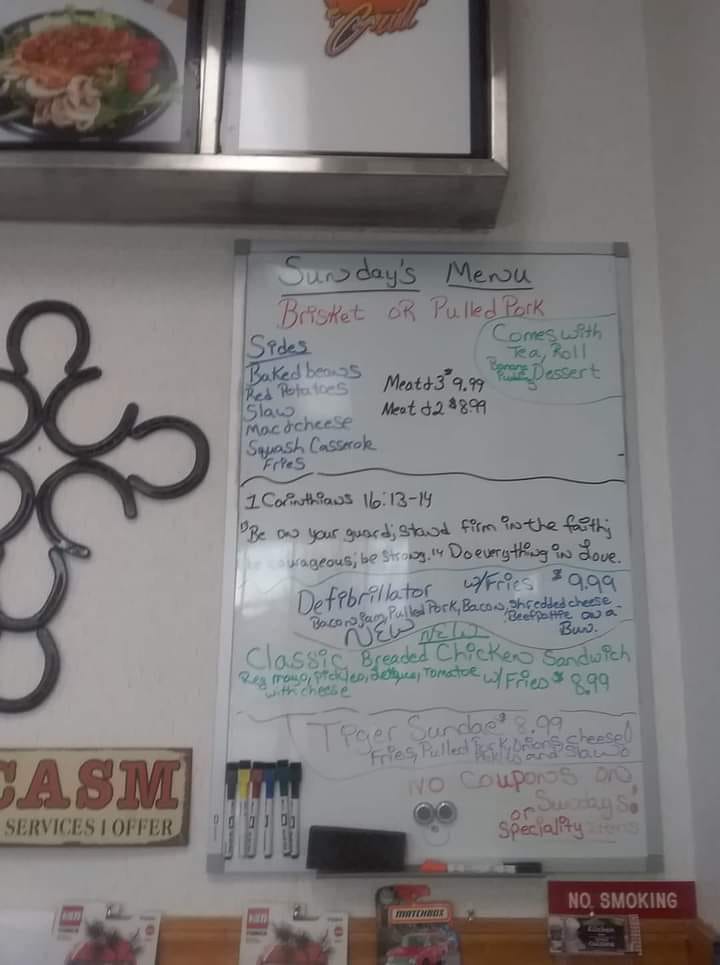 Grill
Sunday's Menu
Brisket or Pulled Pork
Comes with
Tea, Roll
Banana Pudding Dessert
Sides
Baked beans
Red Potatoes
Slaw
Mac & cheese
Squash Casserole
Fries
Meat & 3 $9.99
Meat & 2 $8.99
1 Corinthians 16:13-14
13 Be on your guard; stand firm in the faith;
be courageous; be strong. 14 Do everything in Love.
Defibrillator w/Fries $9.99
Bacon jam, Pulled Pork, Bacon, shredded cheese
Beef pattie on a
Bun.
NEW NEW
Classic Breaded Chicken Sandwich
Reg mayo, pickles, lettuce, Tomatoe w/Fries $8.99
with cheese
Tiger Sundae $8.99
Fries, Pulled Pork, Onions, Cheese,
Pickles and Slaw
No Coupons on
Sundays
or
Speciality items
CASM
SERVICES I OFFER
NO SMOKING
MATCHBOX